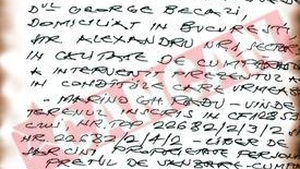 DUL GEORGE BECALI,
DOMICILIAT IN BUCURESTI
STR ALEXANDRU NR.1, SECTOR
IN CALITATE DE CUMPARATOR
A INTERVENIT PREZENTUL A
IN CONDITII CARE URMEA
- MARINO GH. RADU - VINDE
TERENUL INSCRIS IN CF 12853
CLUJ, NR. TOP 22682/2/3/2
NR. 22682/2/4/2 LIBER DE
SARCINI PROPRIETATE PERSON
PRETUL DE VANZARE-CUMP